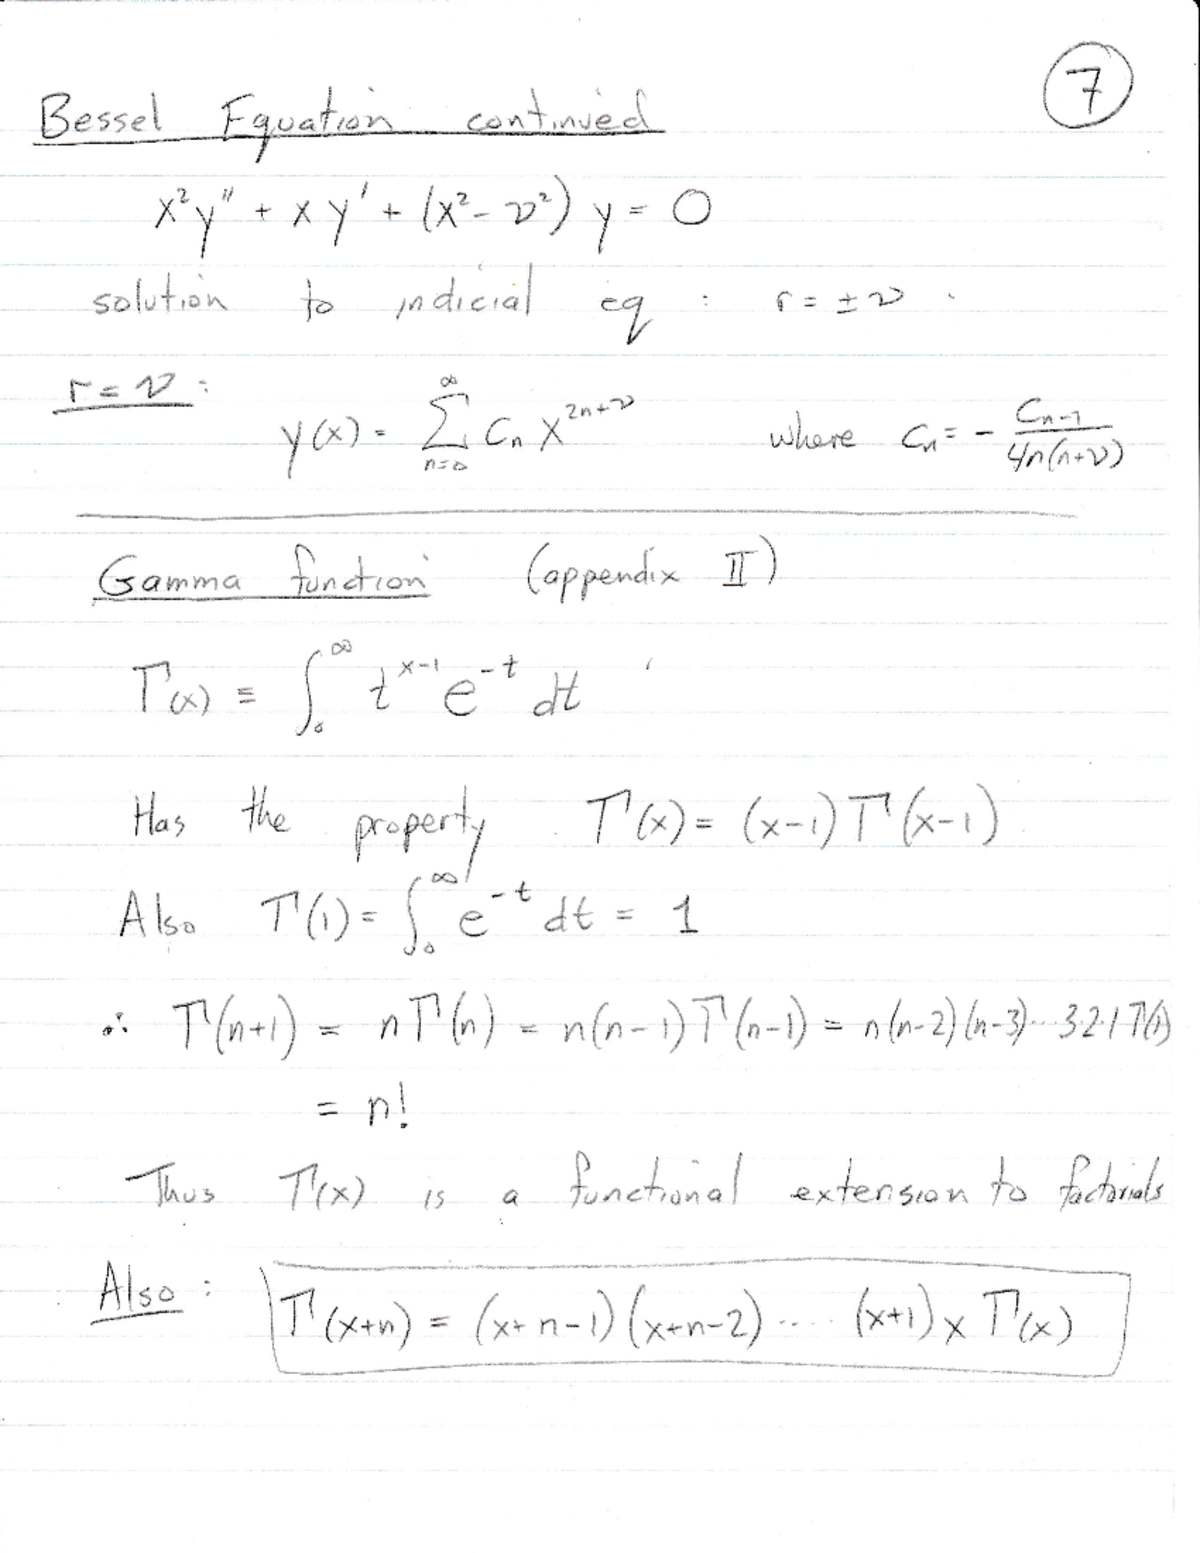 7
Bessel Equation continued
x²y'' + xy' + (x² - ν²) y = 0
solution to indicial eq : r = ± ν .
r = ν :
y(x) = ∑_{n=0}^{∞} Cₙ x^{2n+ν} where Cₙ = - C_{n-1} / 4n(n+ν)
Gamma function (appendix II)
Γ(x) ≡ ∫₀^∞ t^{x-1} e^{-t} dt
Has the property Γ(x) = (x-1) Γ(x-1)
Also Γ(1) = ∫₀^∞ e^{-t} dt = 1
∴ Γ(n+1) = nΓ(n) = n(n-1)Γ(n-1) = n(n-2)(n-3)... 3·2·1 Γ(1)
= n!
Thus Γ(x) is a functional extension to factorials
Also : Γ(x+n) = (x+n-1)(x+n-2) ..... (x+1) x Γ(x)